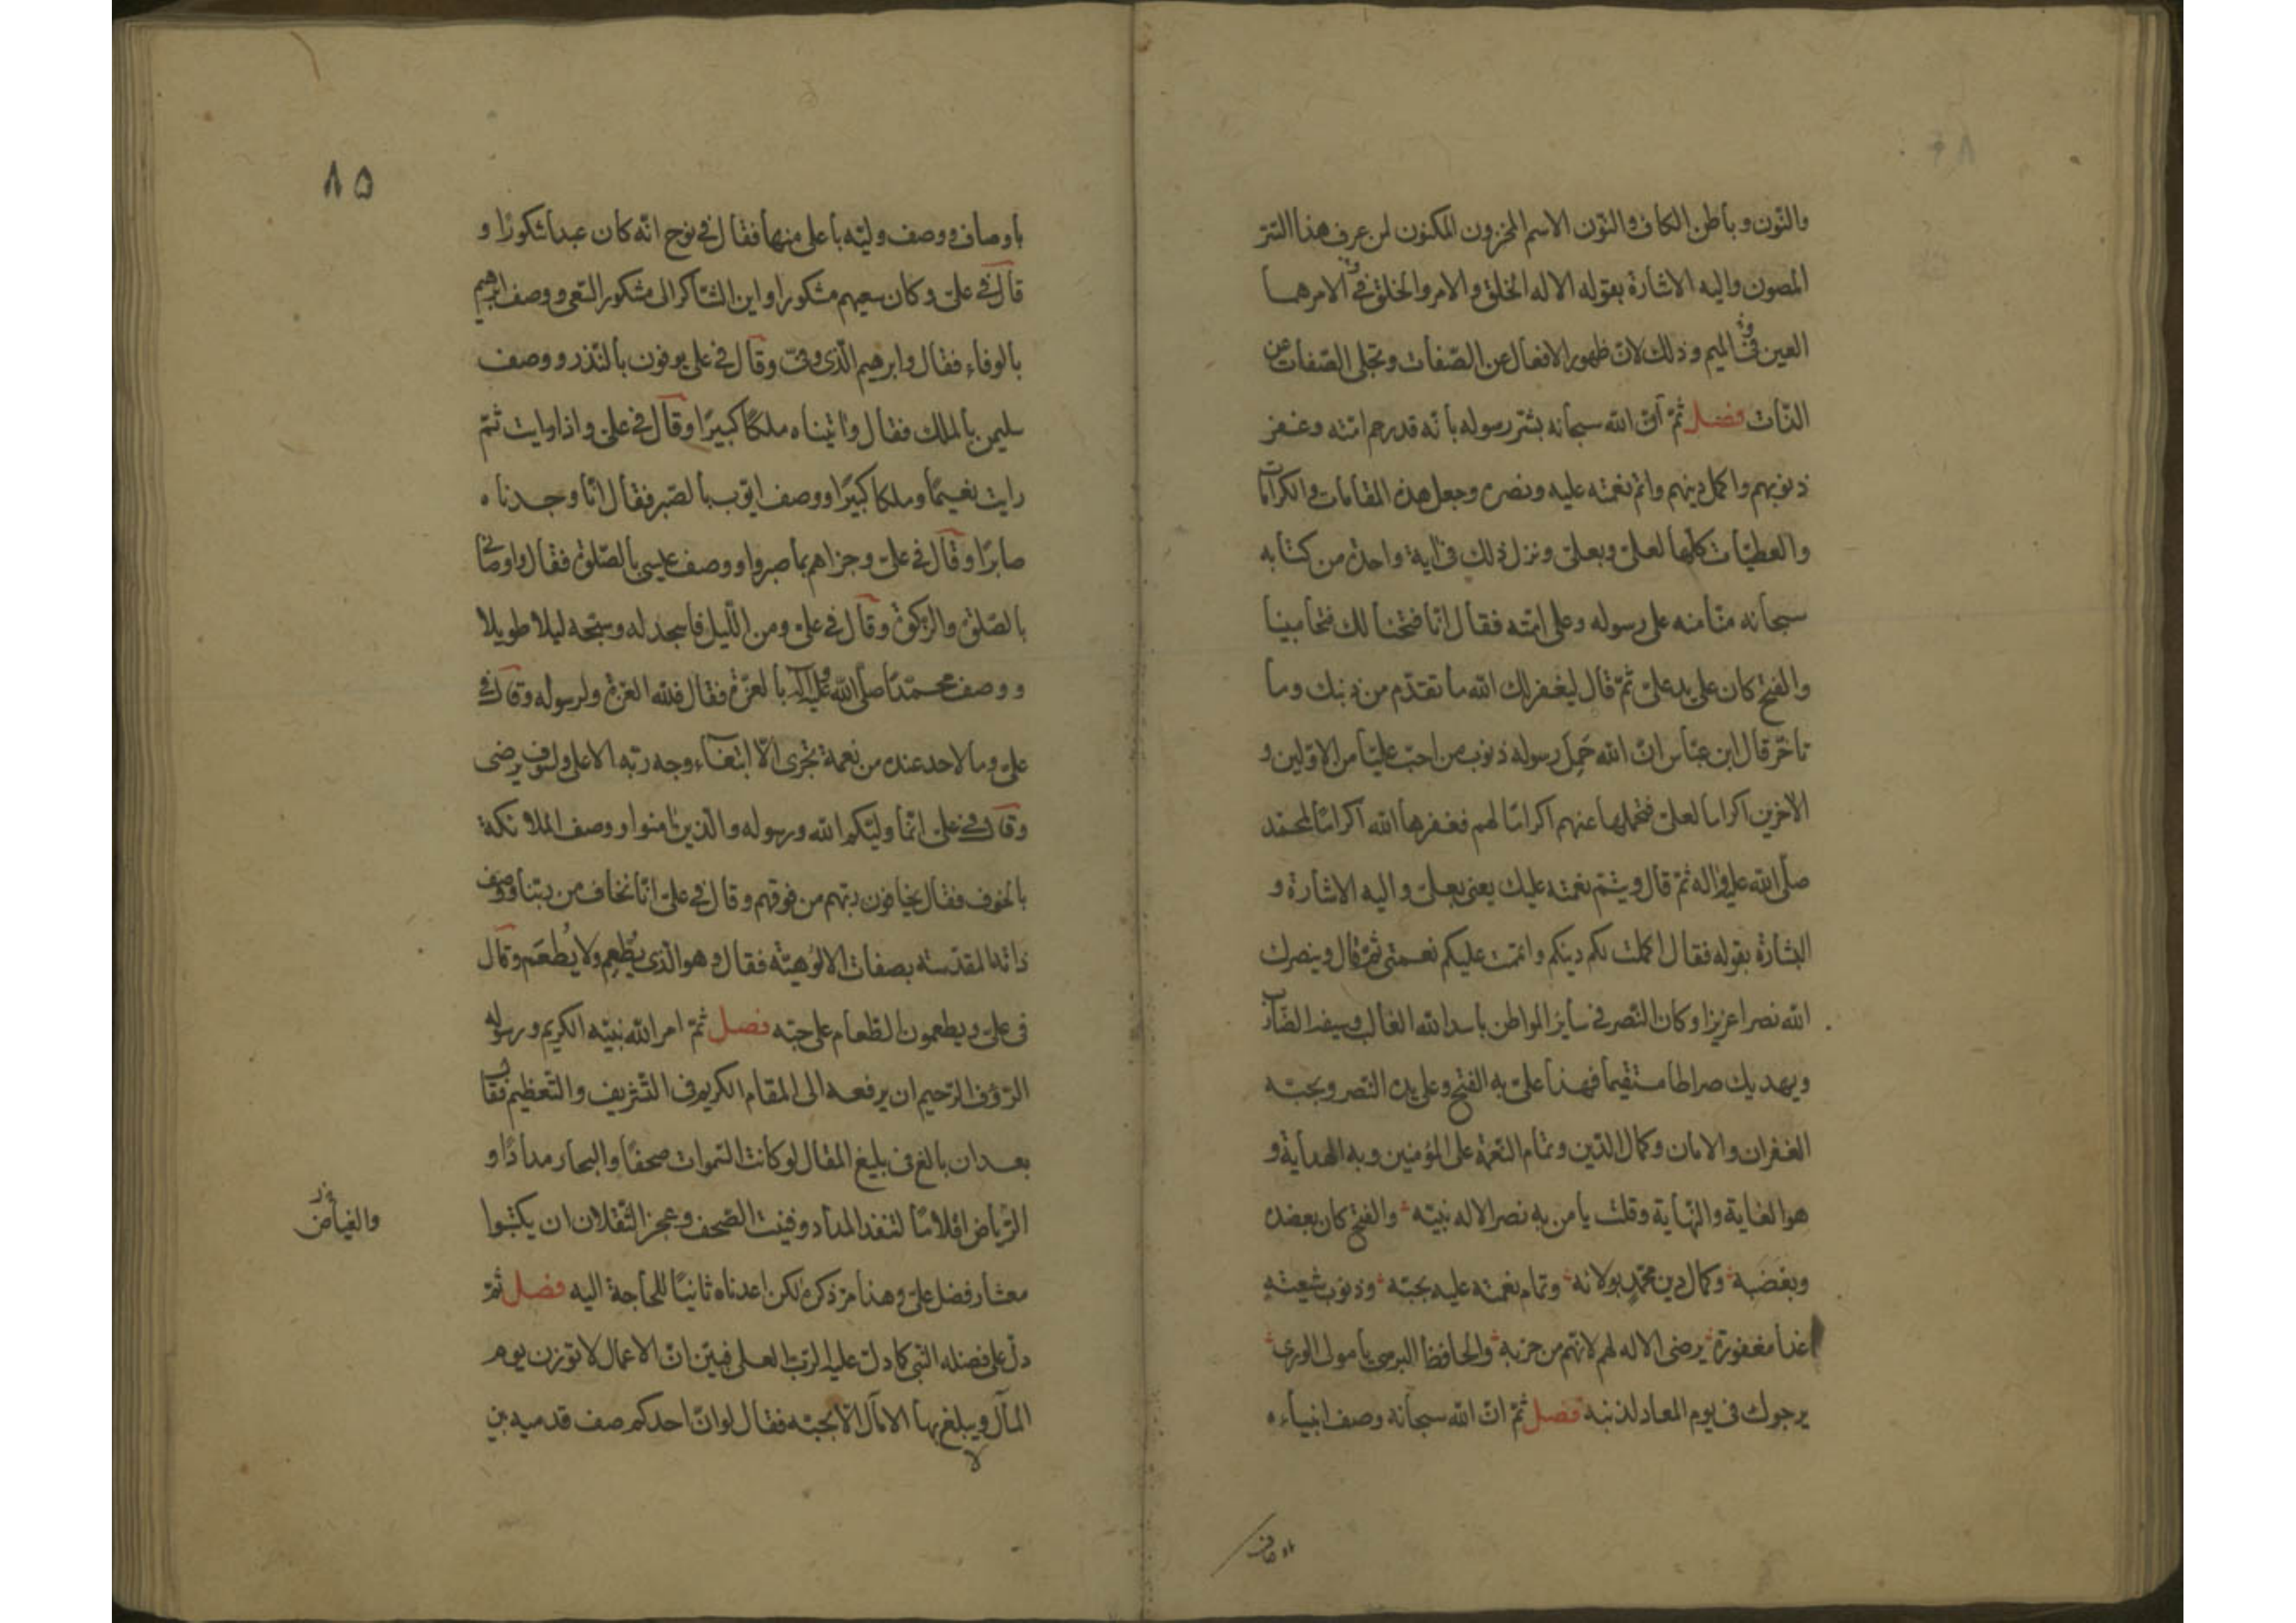 والنّون وباطن الكاف والنّون الاسم المخزون المكنون لمن عرف هذا السّر
المصون واليه الاشارة بقوله الا له الخلق والامر والخلق في الامر هما
العين في الميم وذلك لانّ ظهور الافعال عن الصّفات وتجلى الصّفات عن
الذّات فصل ثمّ انّ الله سبحانه بشّر رسوله بانّه قد رحم امّته وغفر
ذنوبهم واكمل دينهم واتم نعمته عليه ونصره وجعل هذه المقامات والكرامات
والعطيّات كلّها لعلىّ وبعلىّ ونزل ذلك فى آية واحدة من كتابه
سبحانه منّا منه على رسوله وعلى امّته فقال انّا فتحنا لك فتحا مبينا
والفتح كان على يد علىّ ثمّ قال ليغفر لك الله ما تقدّم من ذنبك وما
تاخّر قال ابن عبّاس انّ الله حَمِل رسوله ذنوب من احبّ عليّا من الاوّلين و
الآخرين اكراما لعلىّ فتحملها عنهم اكرامًا لهم فغفرها الله اكرامًا لمحمّد
صلّى الله عليه وآله ثمّ قال ويتمّ نعمته عليك يعنى بعلىّ واليه الاشارة و
البشارة بقوله فقال اكملت لكم دينكم واتممت عليكم نعمتى ثمّ قال وينصرك
الله نصرا عزيزا وكان النّصر فى سائر المواطن باسد الله الغالب وسيفه الضّارب
ويهديك صراطا مستقيما فهذا علىّ به الفتح وعلى يده النّصر وبحبّه
الغفران والامان وكمال الدّين وتمام النّعمة على المؤمنين وبه الهداية و
هو الغاية والنّهاية وقلت يا من به نصر الاله نبيّه والفتح كان بعضده
وبغضبه وكمال دين محمّدٍ بولائه وتمام نعمته عليه بحبّه وذنوب شيعته
غدا مغفورة يرضى الاله لهم لانّهم من حزبه والحافظ البرسى يا مولى الورى
يرجوك فى يوم المعاد لذنبه فصل ثمّ انّ الله سبحانه وصف انبياءه
باوصاف
٨٥
باوصاف ووصف وليّه باعلى منها فقال في نوح انّه كان عبدا شكورًا و
قال في علىّ وكان سعيهم مشكورا واين الشّاكر الى مشكور السّعى ووصف ابرهيم
بالوفاء فقال وابرهيم الّذى وفىّ وقال في على يوفون بالنّذر ووصف
سليمن بالملك فقال وآتيناه ملكًا كبيرًا وقال في علىّ واذا رايت ثمّ
رايت نعيمًا وملكا كبيرًا ووصف ايّوب بالصّبر فقال انّا وجدناه
صابرًا وقال في علىّ وجزاهم بما صبروا ووصف عيسى بالصّلوة فقال واوصانى
بالصّلوة والزّكوة وقال في علىّ ومن اللّيل فاسجد له وسبّحه ليلا طويلا
ووصف محمّدًا صلّى الله عليه وآله بالعزّة فقال فللّه العزّة ولرسوله وقال في
علىّ وما لاحد عنده من نعمة تجزى الّا ابتغآء وجه ربّه الاعلى ولسوف يرضى
وقال في على انّما وليّكم الله ورسوله والّذين آمنوا ووصف الملائكة
بالخوف فقال يخافون ربّهم من فوقهم وقال في علىّ انّا نخاف من ربّنا ووصف
ذاته المقدّسة بصفات الالوهيّة فقال وهو الّذى يُطعِم ولا يُطعَم وقال
فى علىّ ويطعمون الطّعام على حبّه فصل ثمّ امر الله نبيّه الكريم ورسوله
الرّؤف الرّحيم ان يرفعه الى المقام الكريم فى التّشريف والتّعظيم فقال
بعد ان بالغ فى بليغ المقال لو كانت السّموات صحفًا والبحار مدادًا و
الرّياض اقلامًا لنفد المداد وفنيت الصّحف وعجز الثّقلان ان يكتبوا
والغياض
معشار فضل علىّ وهذا مرّ ذكره لكن اعدناه ثانيًا للحاجة اليه فصل ثمّ
دلّ على فضله النّبى كما دلّ عليه الربّ العلى فبيّن انّ الاعمال لا توزن يوم
المآل ويبلغ بها الآمال الّا بحبّه فقال لو انّ احدكم صف قدميه بين
لا